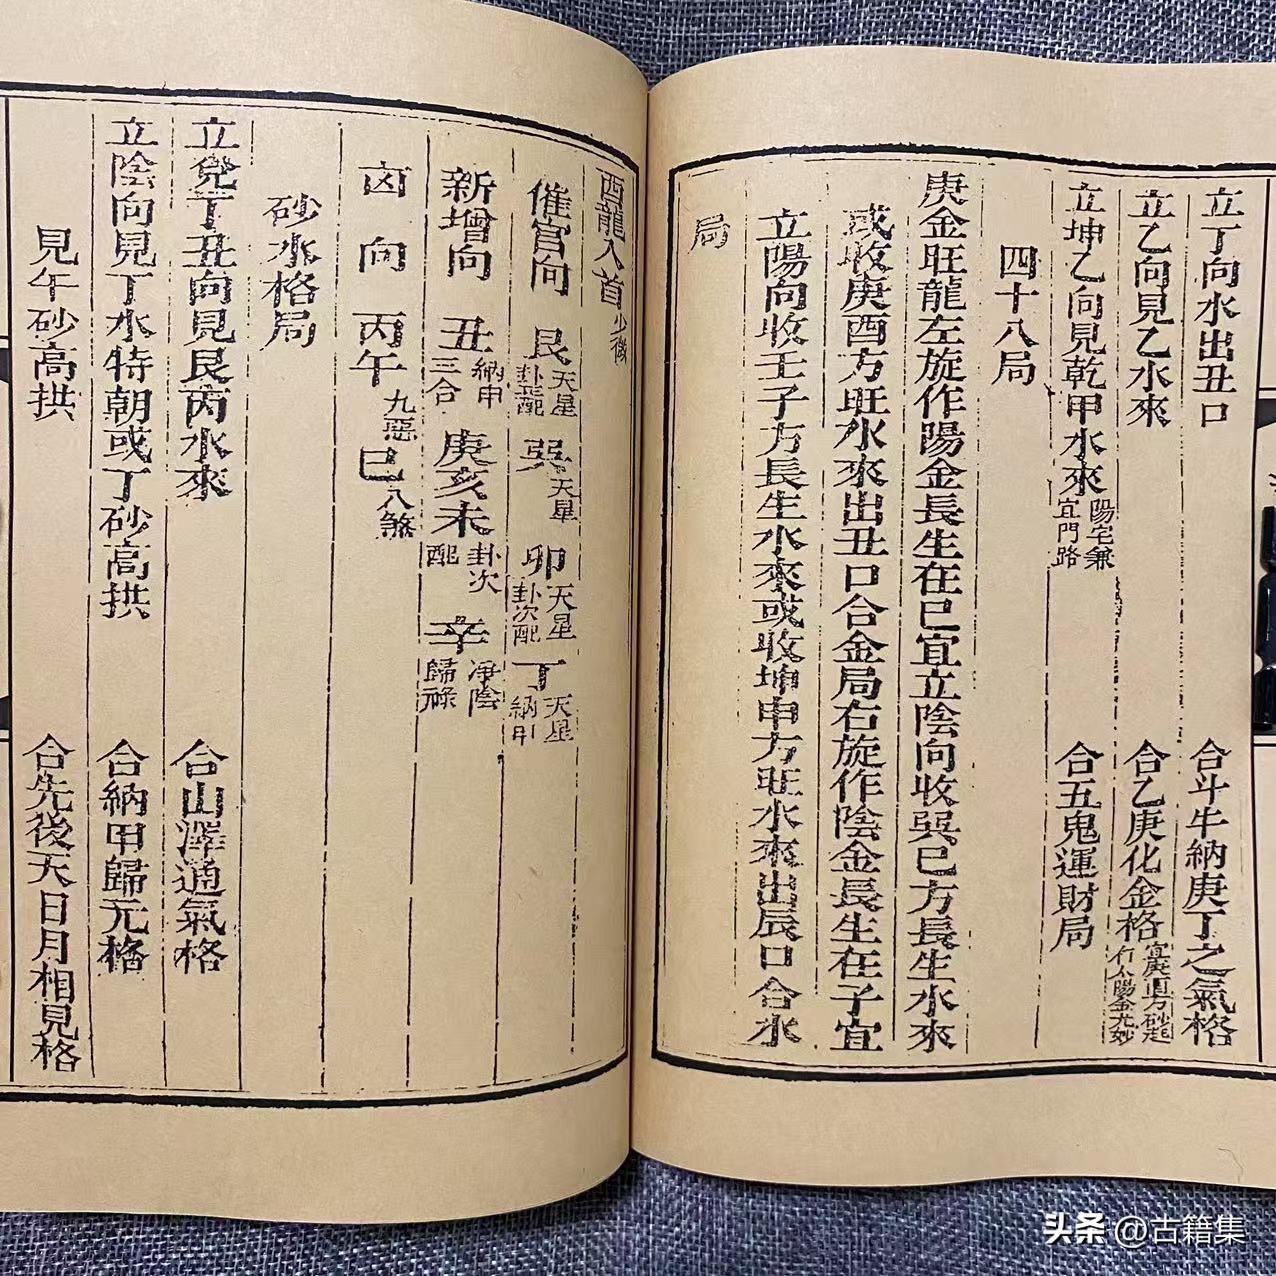 立丁向水出丑口 合斗牛納庚丁之氣格
立乙向見乙水來 合乙庚化金格 宜庚直方砂起 太陽金尤妙
立坤乙向見乾甲水來 陽宅兼宜門路 合五鬼運財局
四十八局
庚金旺龍左旋作陽金長生在巳宜立陰向收巽巳方長生水來
或收庚酉方旺水來出丑口合金局右旋作陰金長生在子宜
立陽向收壬子方長生水來或收坤申方旺水來出辰口合水
局
酉龍入首 少微
催官向 艮 天星卦配 巽 天星 卯 天星卦次配 丁 天星納甲
新增向 丑 納甲三合 庚亥未 卦次配 辛 凈陰歸祿
凶向 丙午 九惡 巳 八煞
砂水格局
立兌丁丑向見艮丙水來 合山澤通氣格
立陰向見丁水特朝或丁砂高拱 合納甲歸元格
見午砂高拱 合先後天日月相見格
头条 @古籍集